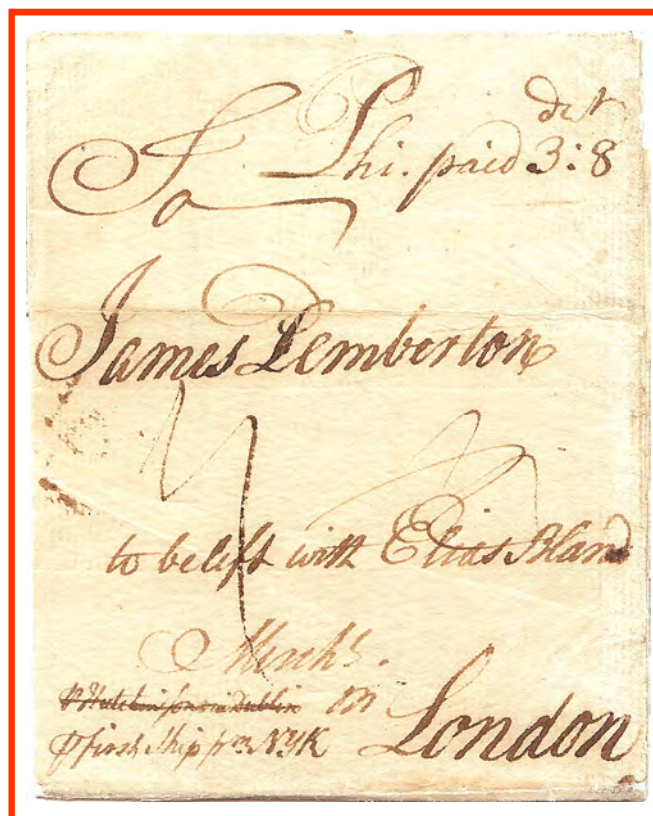 dwt
To Phi. paid 3:8
James Pemberton
to be left with Elias Bland
Mercht.
in
℔ Hutchinson via Dublin
℔ first Ship frm NYK London